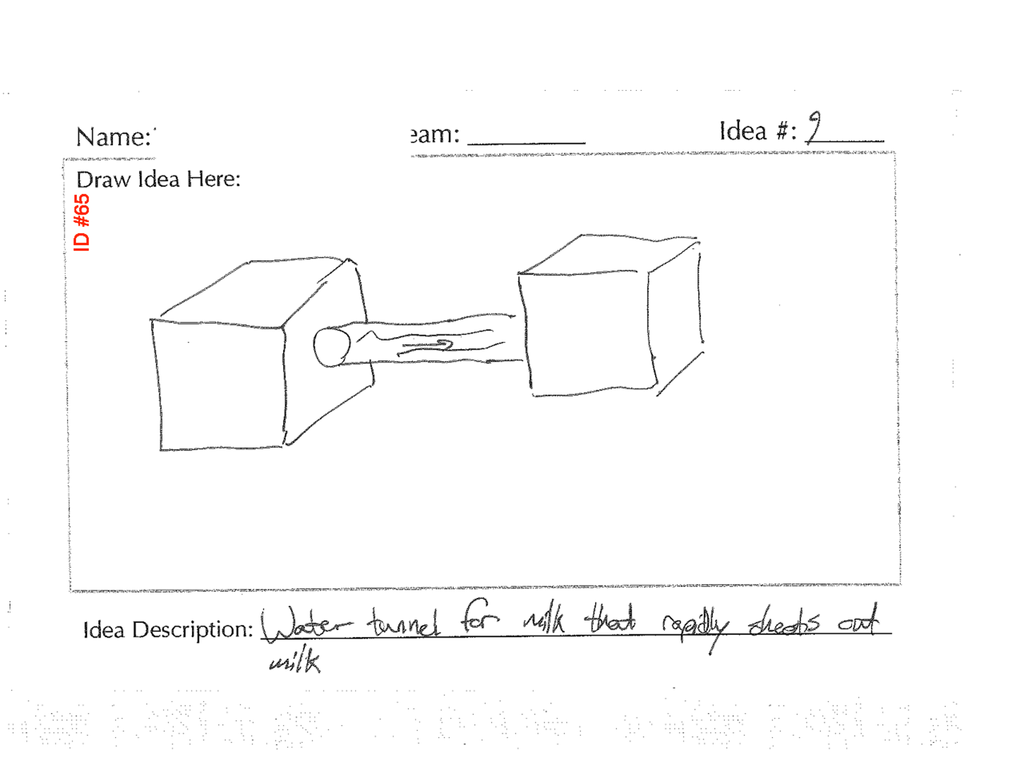 Name:
eam:
Idea #: 9
Draw Idea Here:
ID #65
Idea Description: Water tunnel for milk that rapidly shoots out
milk